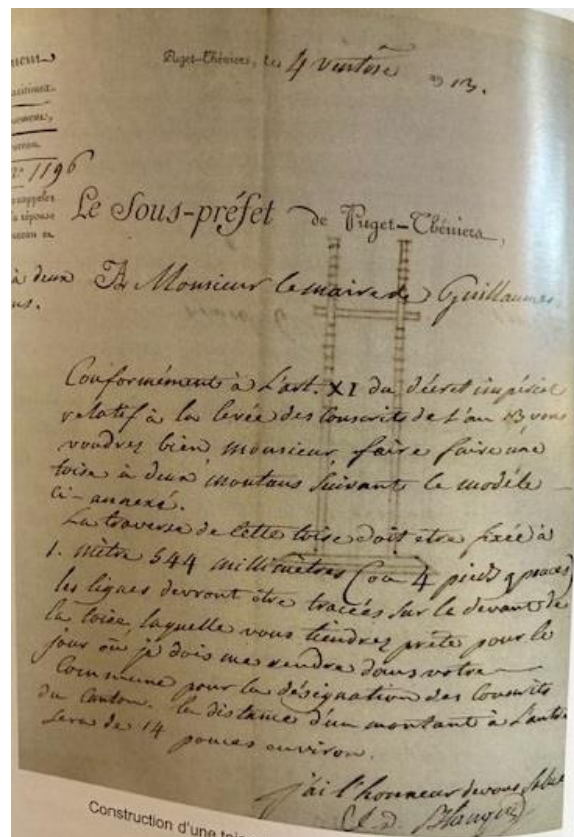 Puget-Théniers, le 4 ventose an 13.
1196
Le Sous-préfet de Puget-Théniers,
à deux
A Monsieur le maire de Guillaumes
Conformément à L'art. XI du décret impérial
relatif à la levée des Conscrits de L'an 13, vous
voudrez bien, monsieur, faire faire une
toise à deux montans suivant le modéle
ci-annexé.
La traverse de cette toise doit etre fixée à
1. mètre 544 millimètres (ou 4 pieds 9 pouces)
les lignes devront être tracées sur le devant de
la toise, laquelle vous tiendrez prête pour le
jour où je dois me rendre dans votre
Commune pour la désignation des Conscrits
du Canton. la distance d'un montant à L'autre
sera de 14 pouces environ.
j'ai l'honneur de vous
Construction d'une